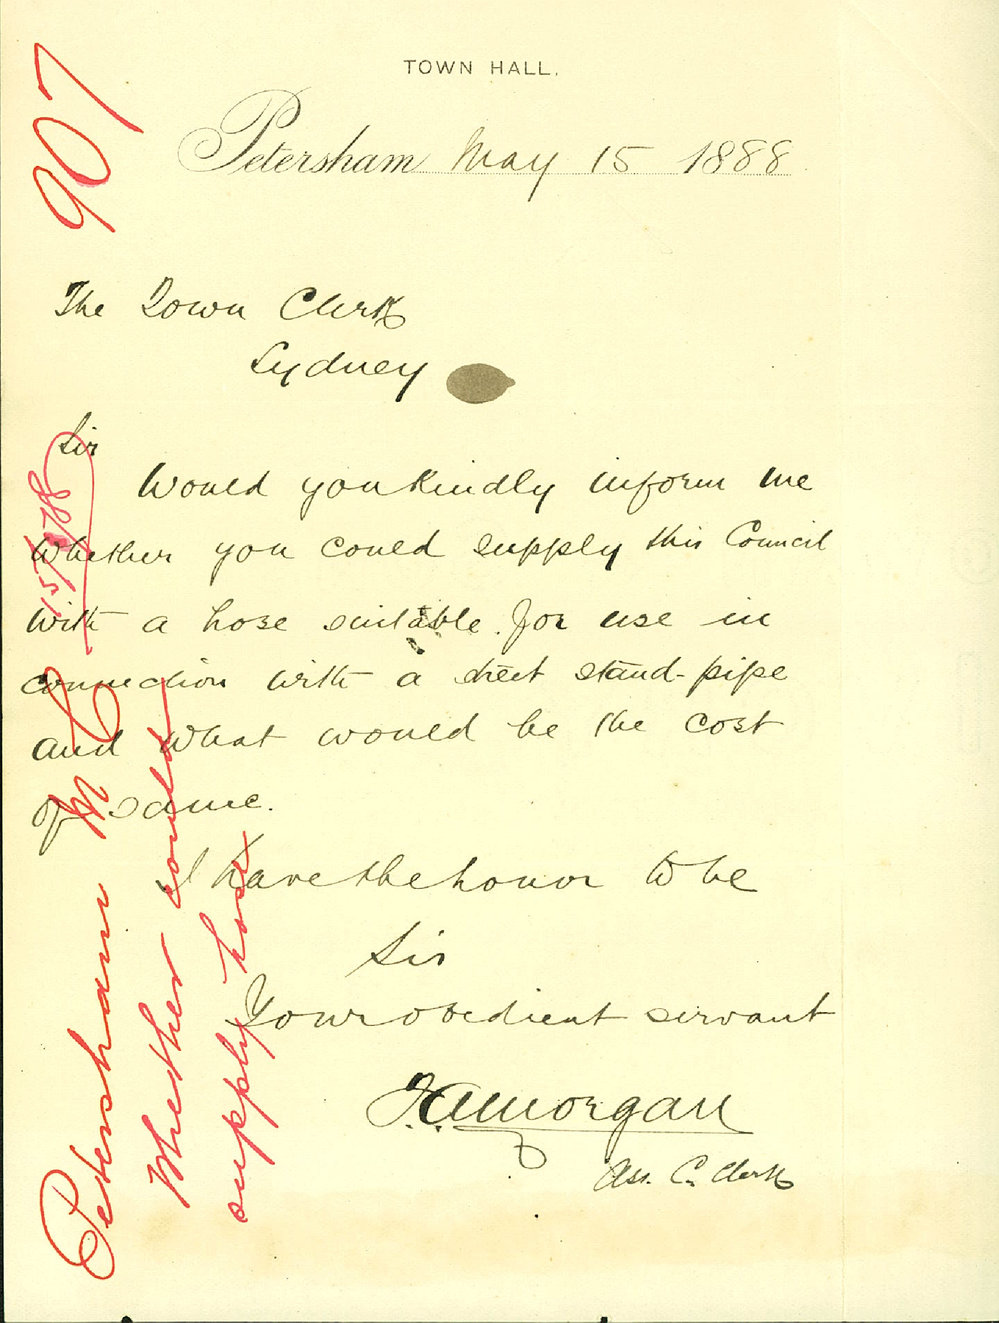 TOWN HALL.
Petersham May 15 1888
The Town Clerk
Sydney
Sir
Would you kindly inform me
whether you could supply this Council
with a hose suitable for use in
connection with a street stand-pipe
and what would be the cost
of same.
I have the honor to be
Sir
Your obedient servant
Morgan
Ass. C. Clerk
907
15/5/88
Petersham M C
Whether could
supply hose